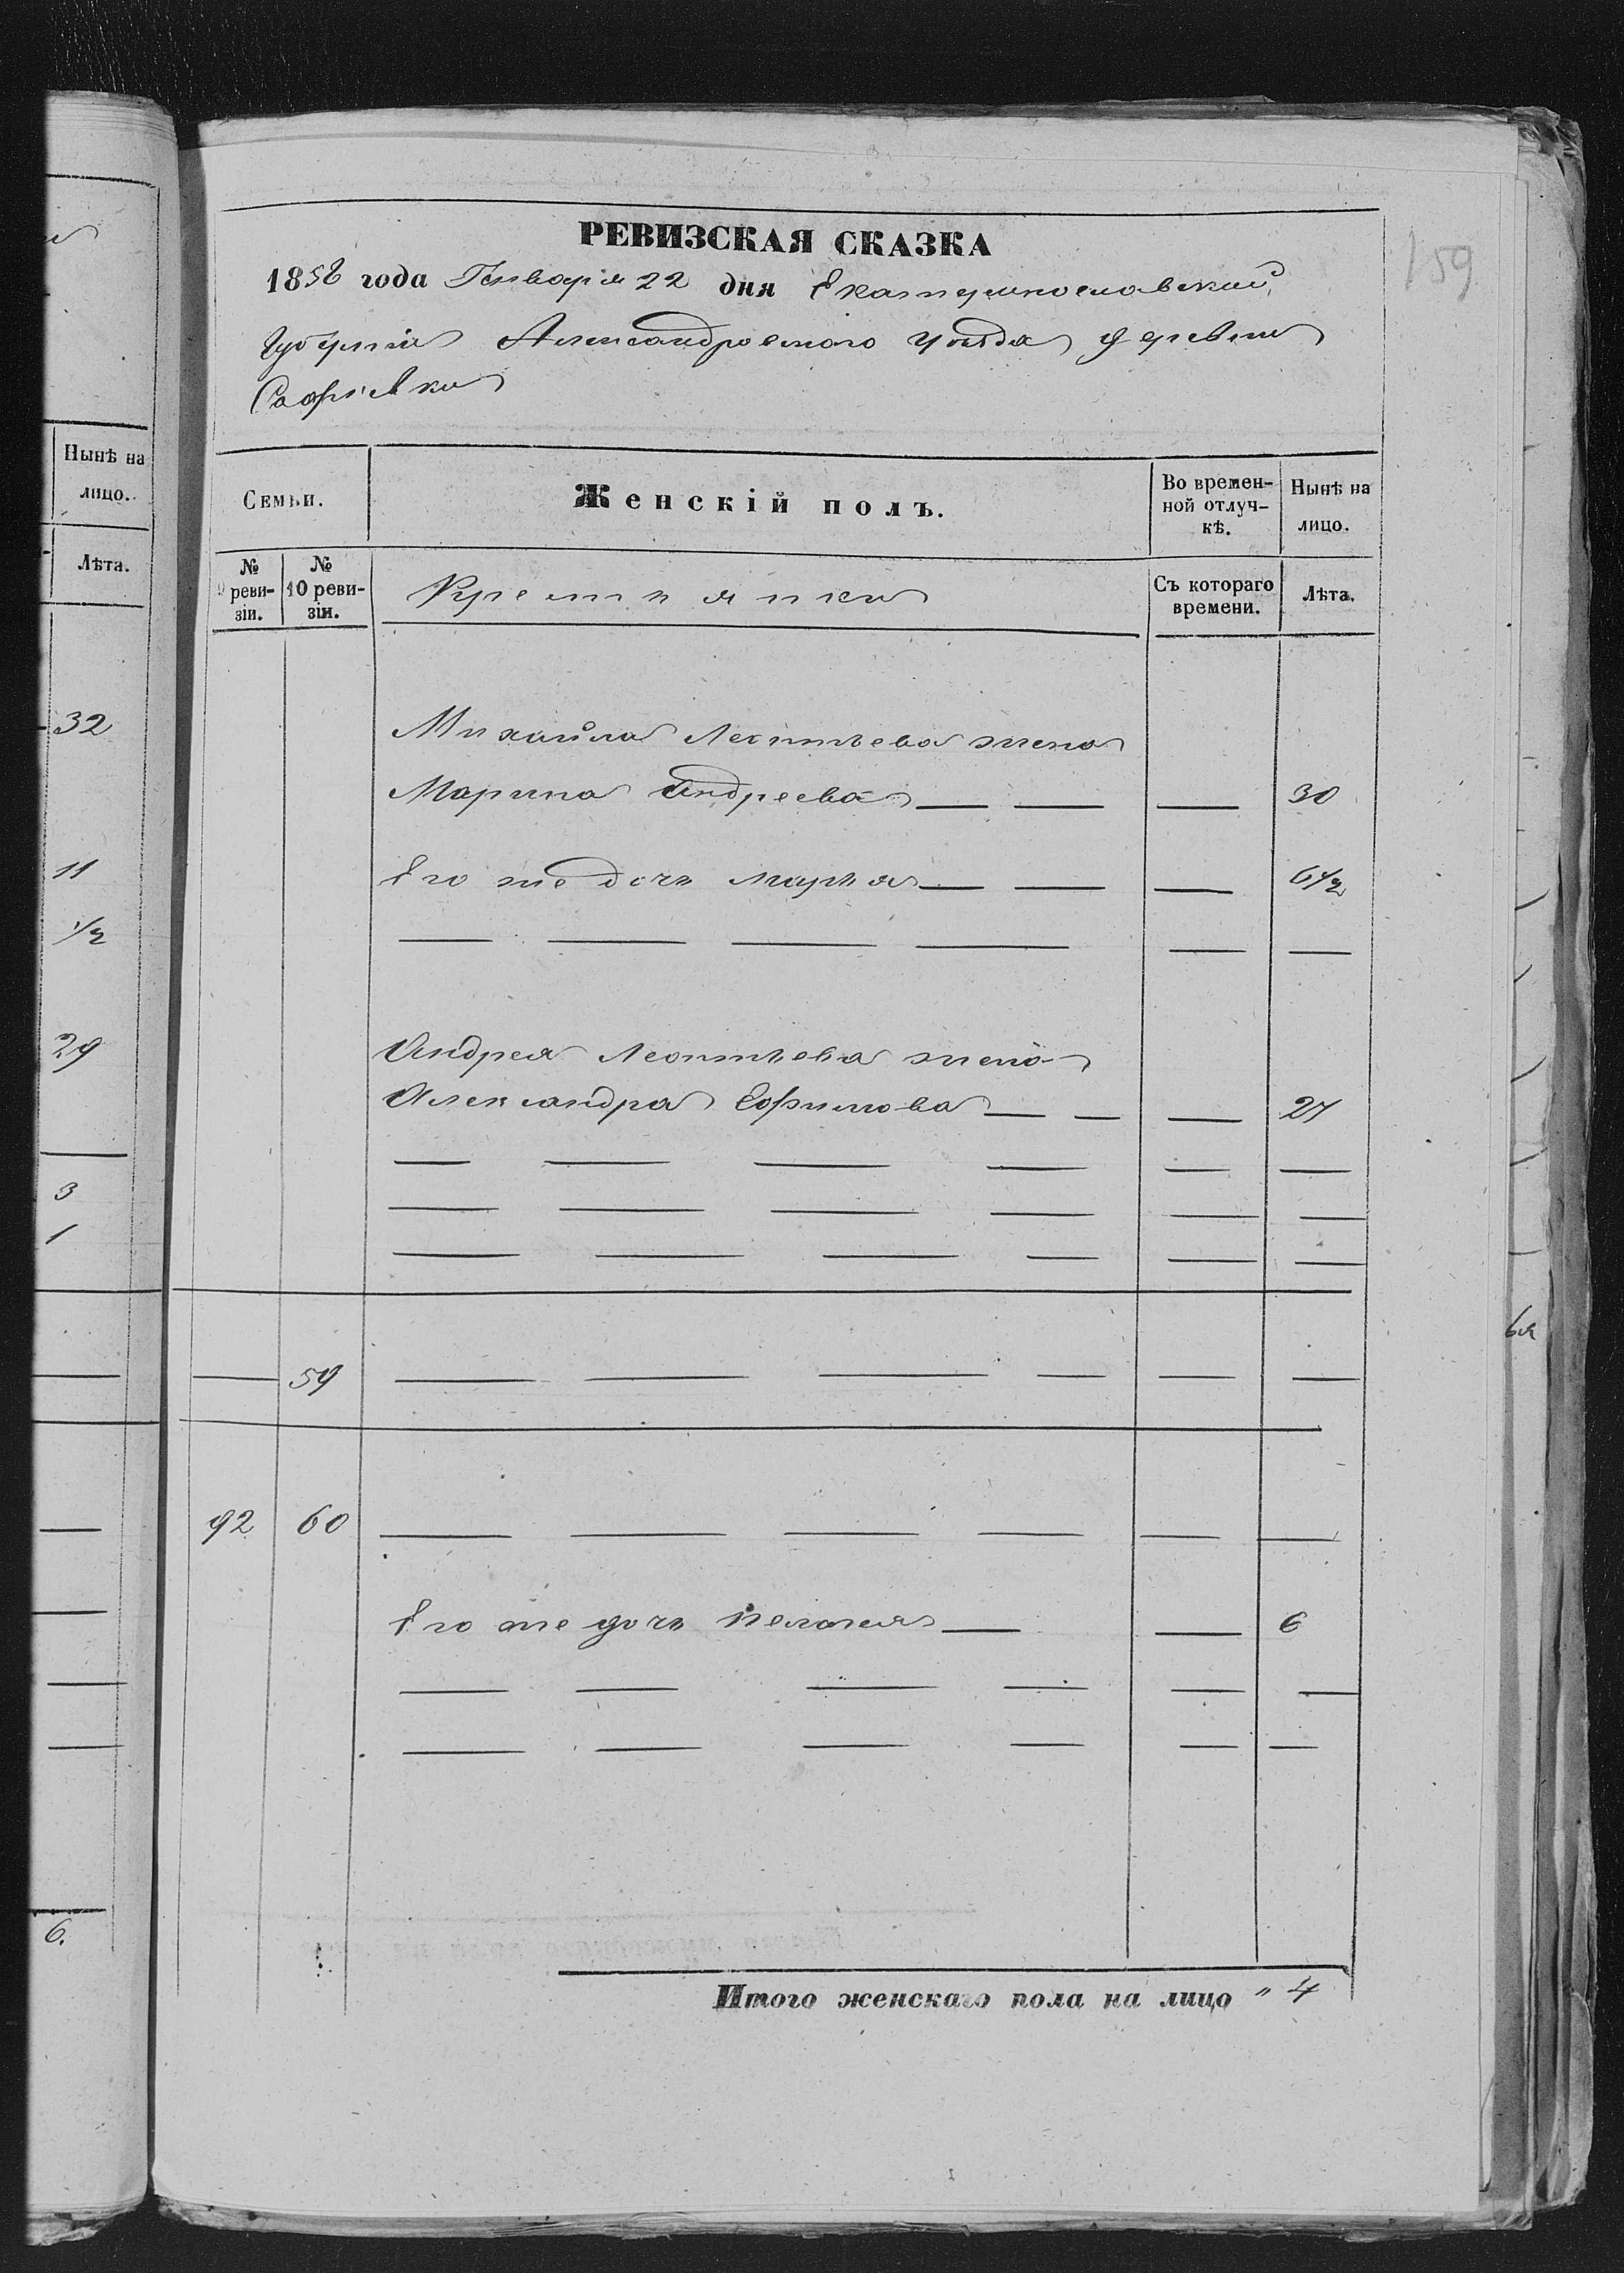 159
РЕВИЗСКАЯ СКАЗКА
1858 года Генваря 22 дня Екатеринославской
Губерніи Александровскаго уѣзда деревни
Софіевки
Нынѣ на
лицо.
Лѣта.
32
11
1/2
29
3
1
6.
Семьи.
Женскій полъ.
Во времен-
ной отлуч-
кѣ.
Нынѣ на
лицо.
№
9 реви-
зіи.
№
10 реви-
зіи.
Крестьянки
Съ котораго
времени.
Лѣта.
Михайла Леонтьева жена
Марина Андреева — — — 30
Его же дочь Марья — — — 6 1/2
— — — — — —
Андрея Леонтьева жена
Александра Ефимова — — — 27
— — — — — —
— — — — — —
— — — — — —
— 59 — — — — — —
92 60 — — — — — —
Его же дочь Пелагея — — 6
— — — — — —
— — — — — —
Итого женскаго пола на лицо " 4